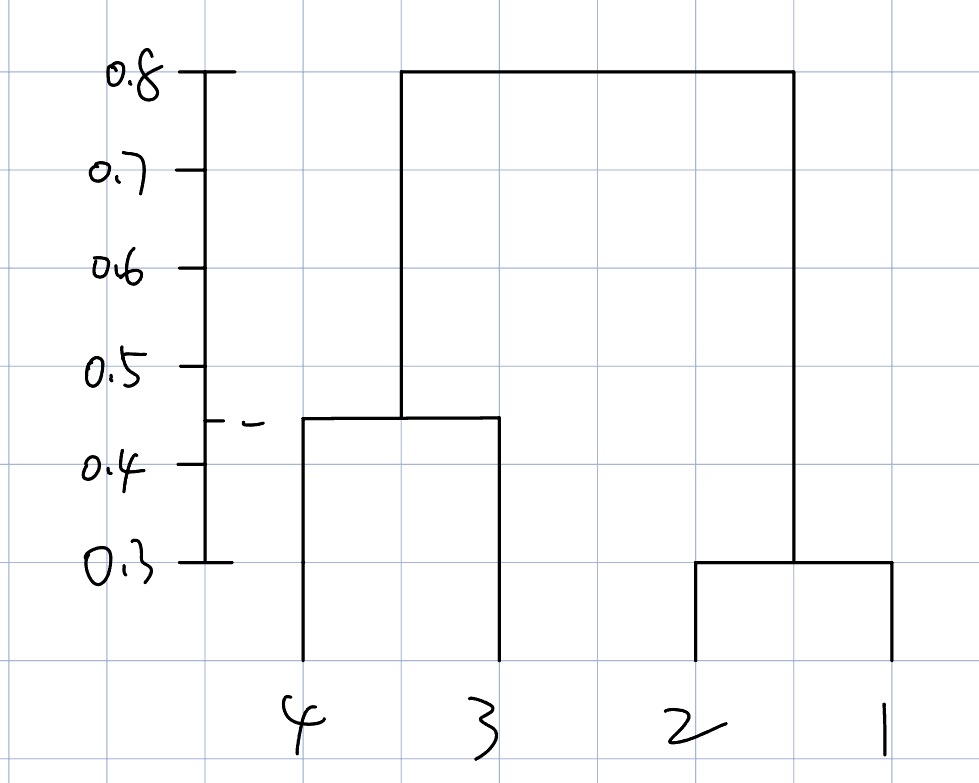 0.8
0.7
0.6
0.5
0.4
0.3
4 3 2 1